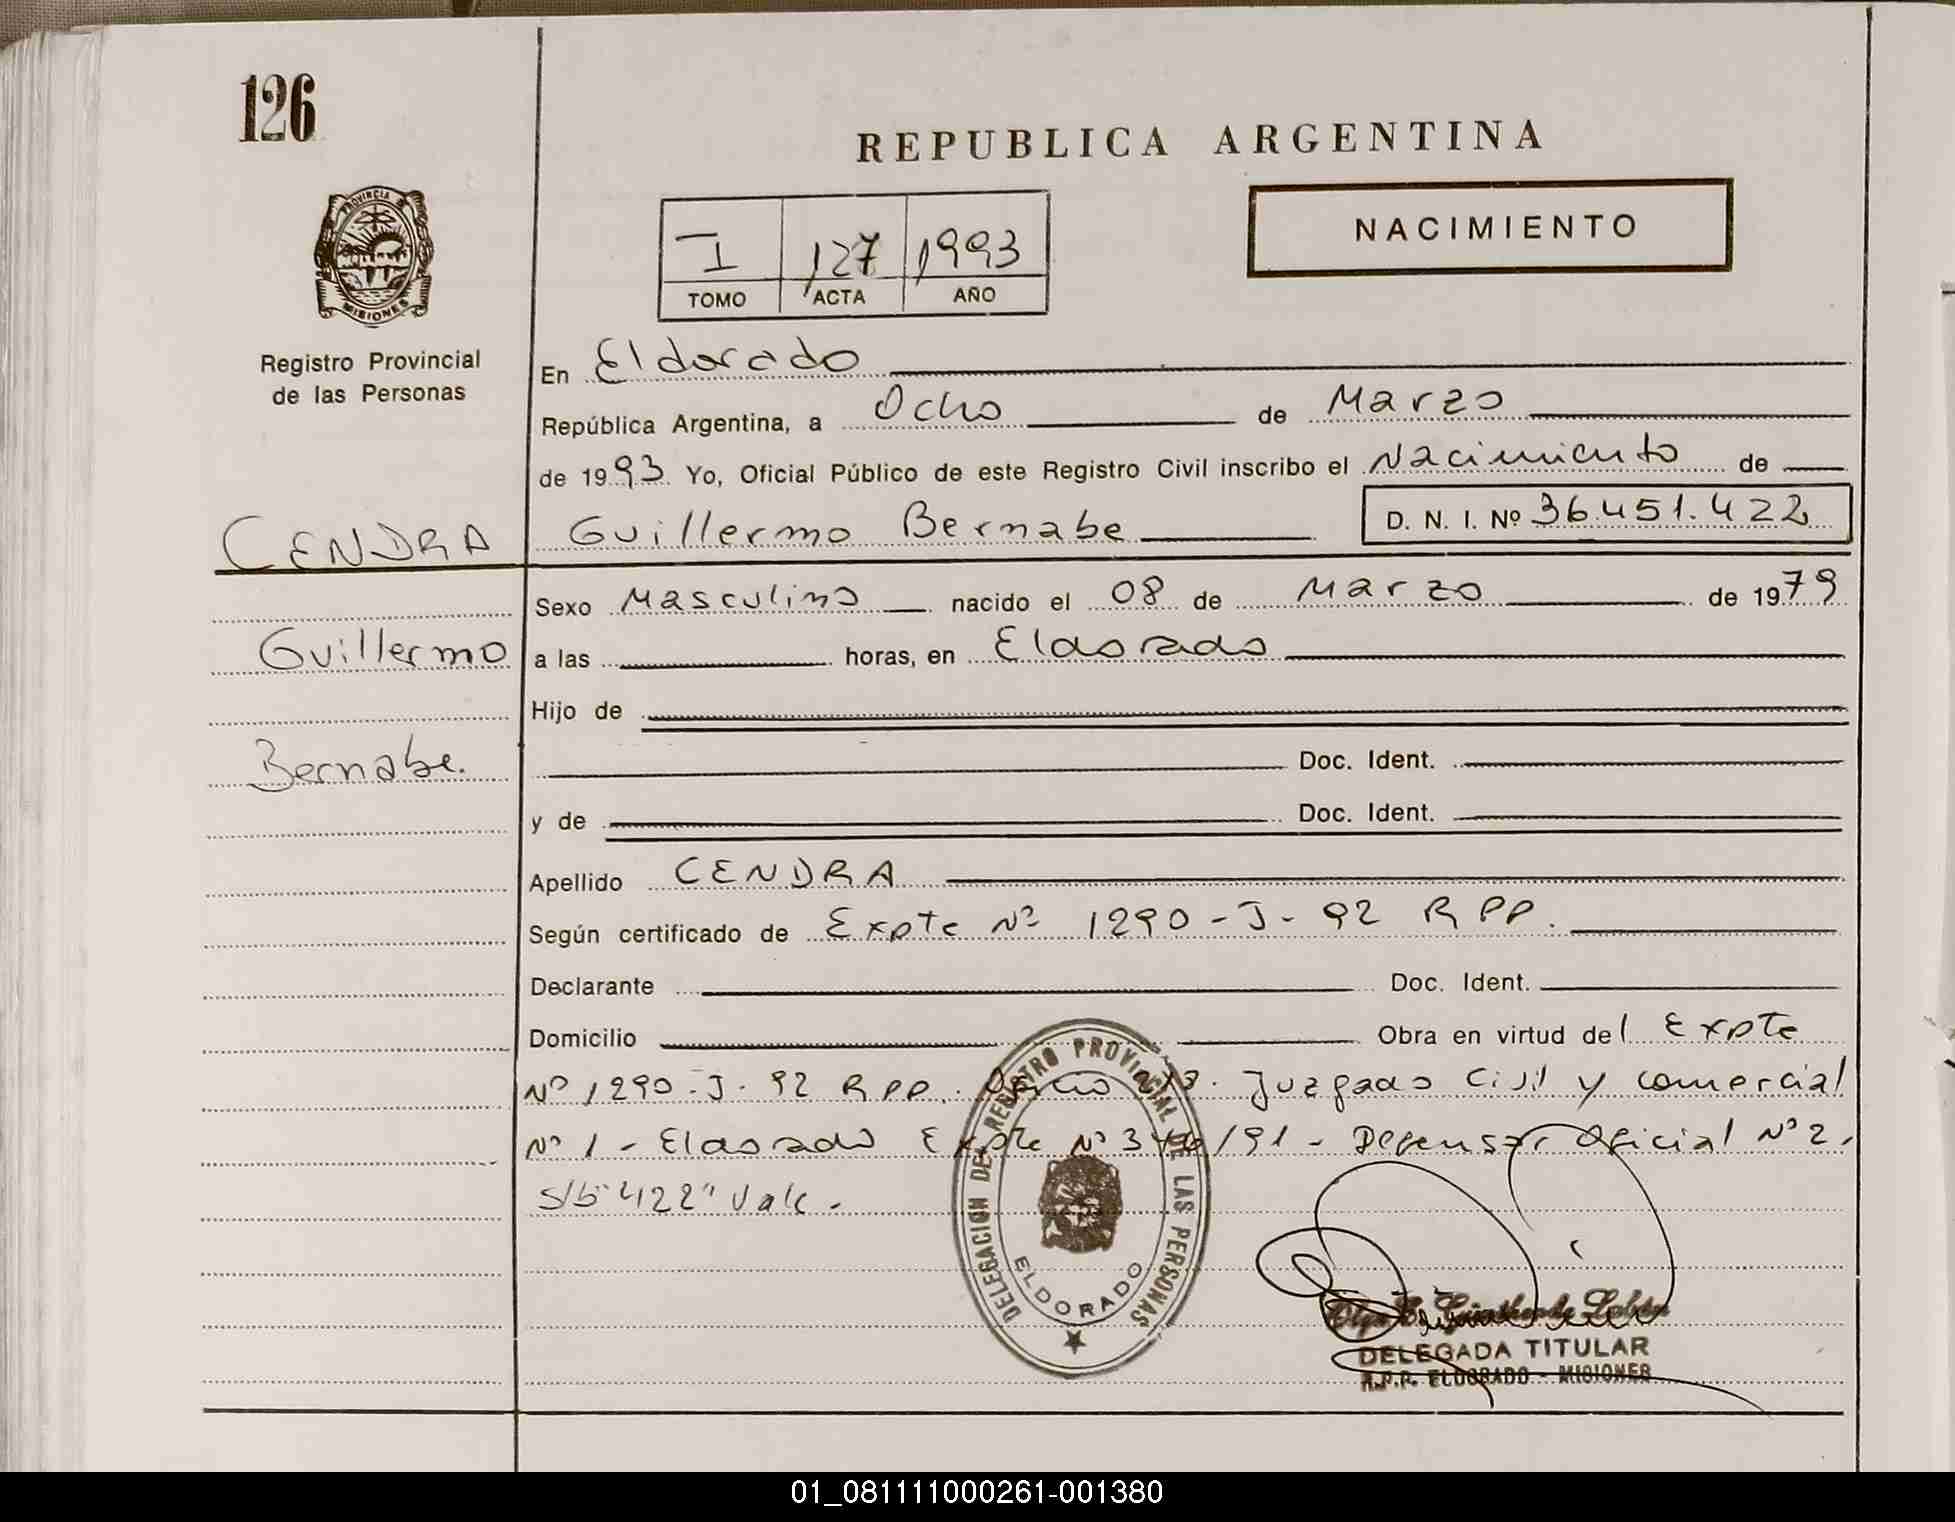 126
REPUBLICA ARGENTINA
NACIMIENTO
PROVINCIA DE
MISIONES
Registro Provincial
de las Personas
I 127 1993
TOMO ACTA AÑO
En Eldorado
República Argentina, a Ocho de Marzo
de 1993 Yo, Oficial Público de este Registro Civil inscribo el Nacimiento de
CENDRA Guillermo Bernabe D. N. I. Nº 36.451.422
Sexo Masculino nacido el 08 de Marzo de 1979
Guillermo a las horas, en Eldorado
Hijo de
Bernabe. Doc. Ident.
y de Doc. Ident.
Apellido CENDRA
Según certificado de Expte Nº 1290-J-92 RPP.
Declarante Doc. Ident.
Domicilio Obra en virtud del Expte
Nº 1290-J-92 RPP. Juzgado Civil y comercial
Nº 1 - Eldorado Expte Nº /91 - Defensor Oficial Nº 2.
S/b "422" Vale.
DELEGACION DEL REGISTRO PROVINCIAL DE LAS PERSONAS
ELDORADO
Olga E.
DELEGADA TITULAR
R.P.P. ELDORADO - MISIONES
01_081111000261-001380